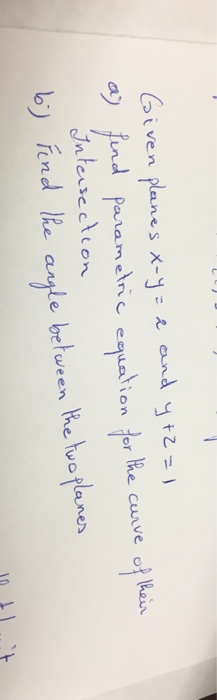 Given planes x-y=2 and y+z=1
a) find parametric equation for the curve of their
Intersection
b) Find the angle between the two planes